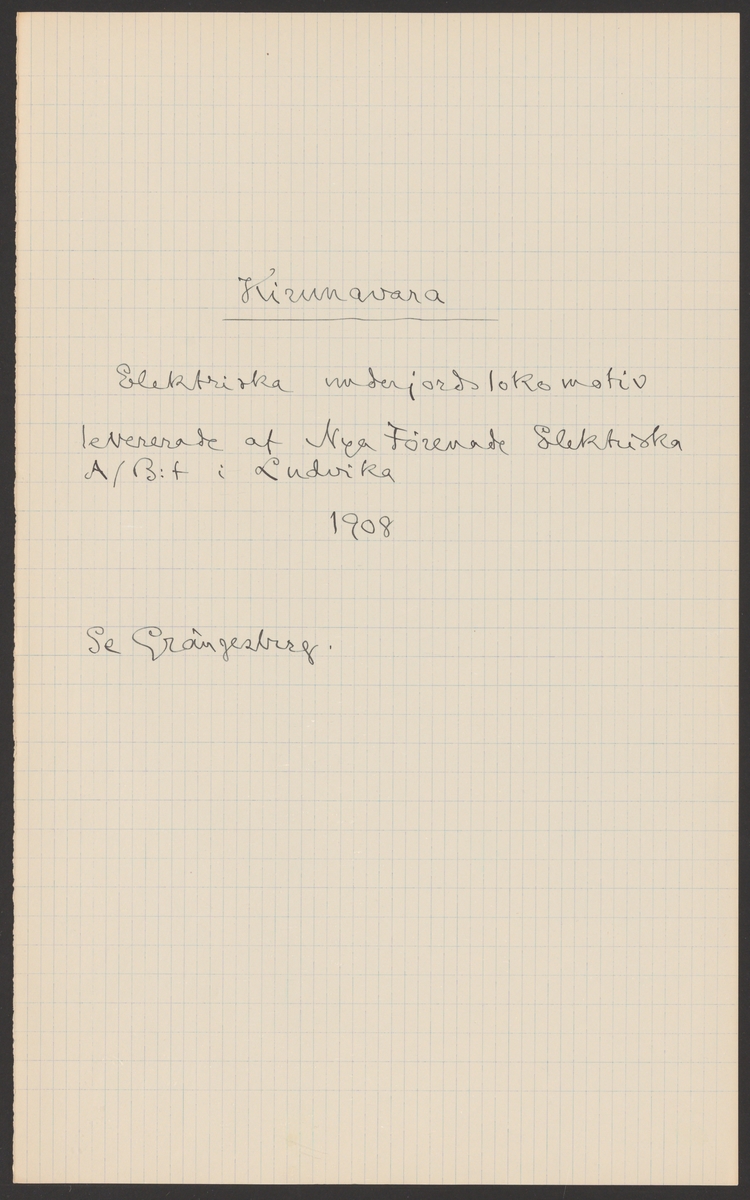 Kirunavara
Elektriska underjordslokomotiv
levererade af Nya Förenade Elektriska
A/B:t i Ludvika
1908
Se Grängesberg.